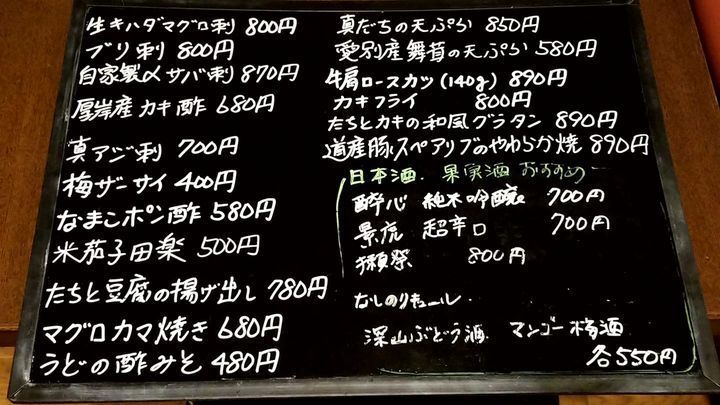 生キハダマグロ刺 800円
ブリ刺 800円
自家製〆サバ刺 870円
厚岸産カキ酢 680円
真アジ刺 700円
梅ザーサイ 400円
なまこポン酢 580円
米茄子田楽 500円
たちと豆腐の揚げ出し 780円
マグロカマ焼き 680円
うどの酢みそ 480円
真だちの天ぷら 850円
愛別産舞茸の天ぷら 580円
牛肩ロースカツ(140g) 890円
カキフライ 800円
たちとカキの和風グラタン 890円
道産豚スペアリブのやわらか焼 890円
日本酒. 果実酒 おすすめ
酔心 純米吟醸 700円
景虎 超辛口 700円
獺祭 800円
なしのリキュール
深山ぶどう酒 マンゴー梅酒
各550円